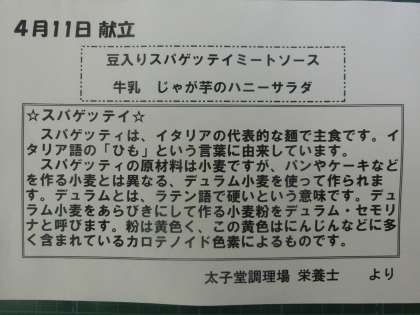 4月11日 献立
豆入りスパゲッテイミートソース
牛乳 じゃが芋のハニーサラダ
☆スパゲッテイ☆
スパゲッティは、イタリアの代表的な麺で主食です。イ
タリア語の「ひも」という言葉に由来しています。
スパゲッティの原材料は小麦ですが、パンやケーキなど
を作る小麦とは異なる、デュラム小麦を使って作られま
す。デュラムとは、ラテン語で硬いという意味です。デュ
ラム小麦をあらびきにして作る小麦粉をデュラム・セモリ
ナと呼びます。粉は黄色く、この黄色はにんじんなどに多
く含まれているカロテノイド色素によるものです。
太子堂調理場 栄養士 より